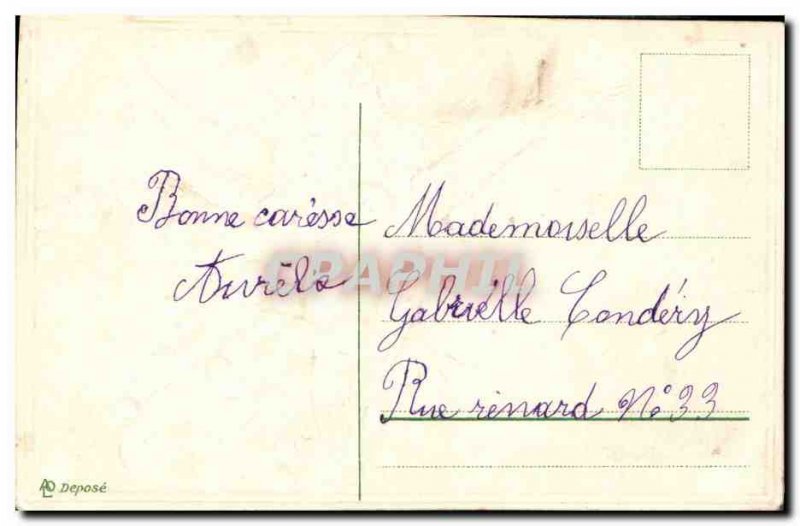 Bonne carèsse
Aurélie
Mademoiselle
Gabriélle Condéry
Rue rénard N° 33
CPAPHIL
Deposé